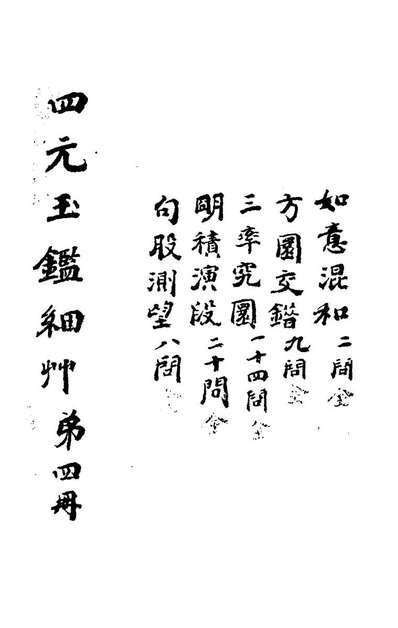 如意混和二問全
方圓交錯九問全
三率究圓一十四問全
明積演段二十問全
句股測望八問全
四元玉鑑細艸第四冊